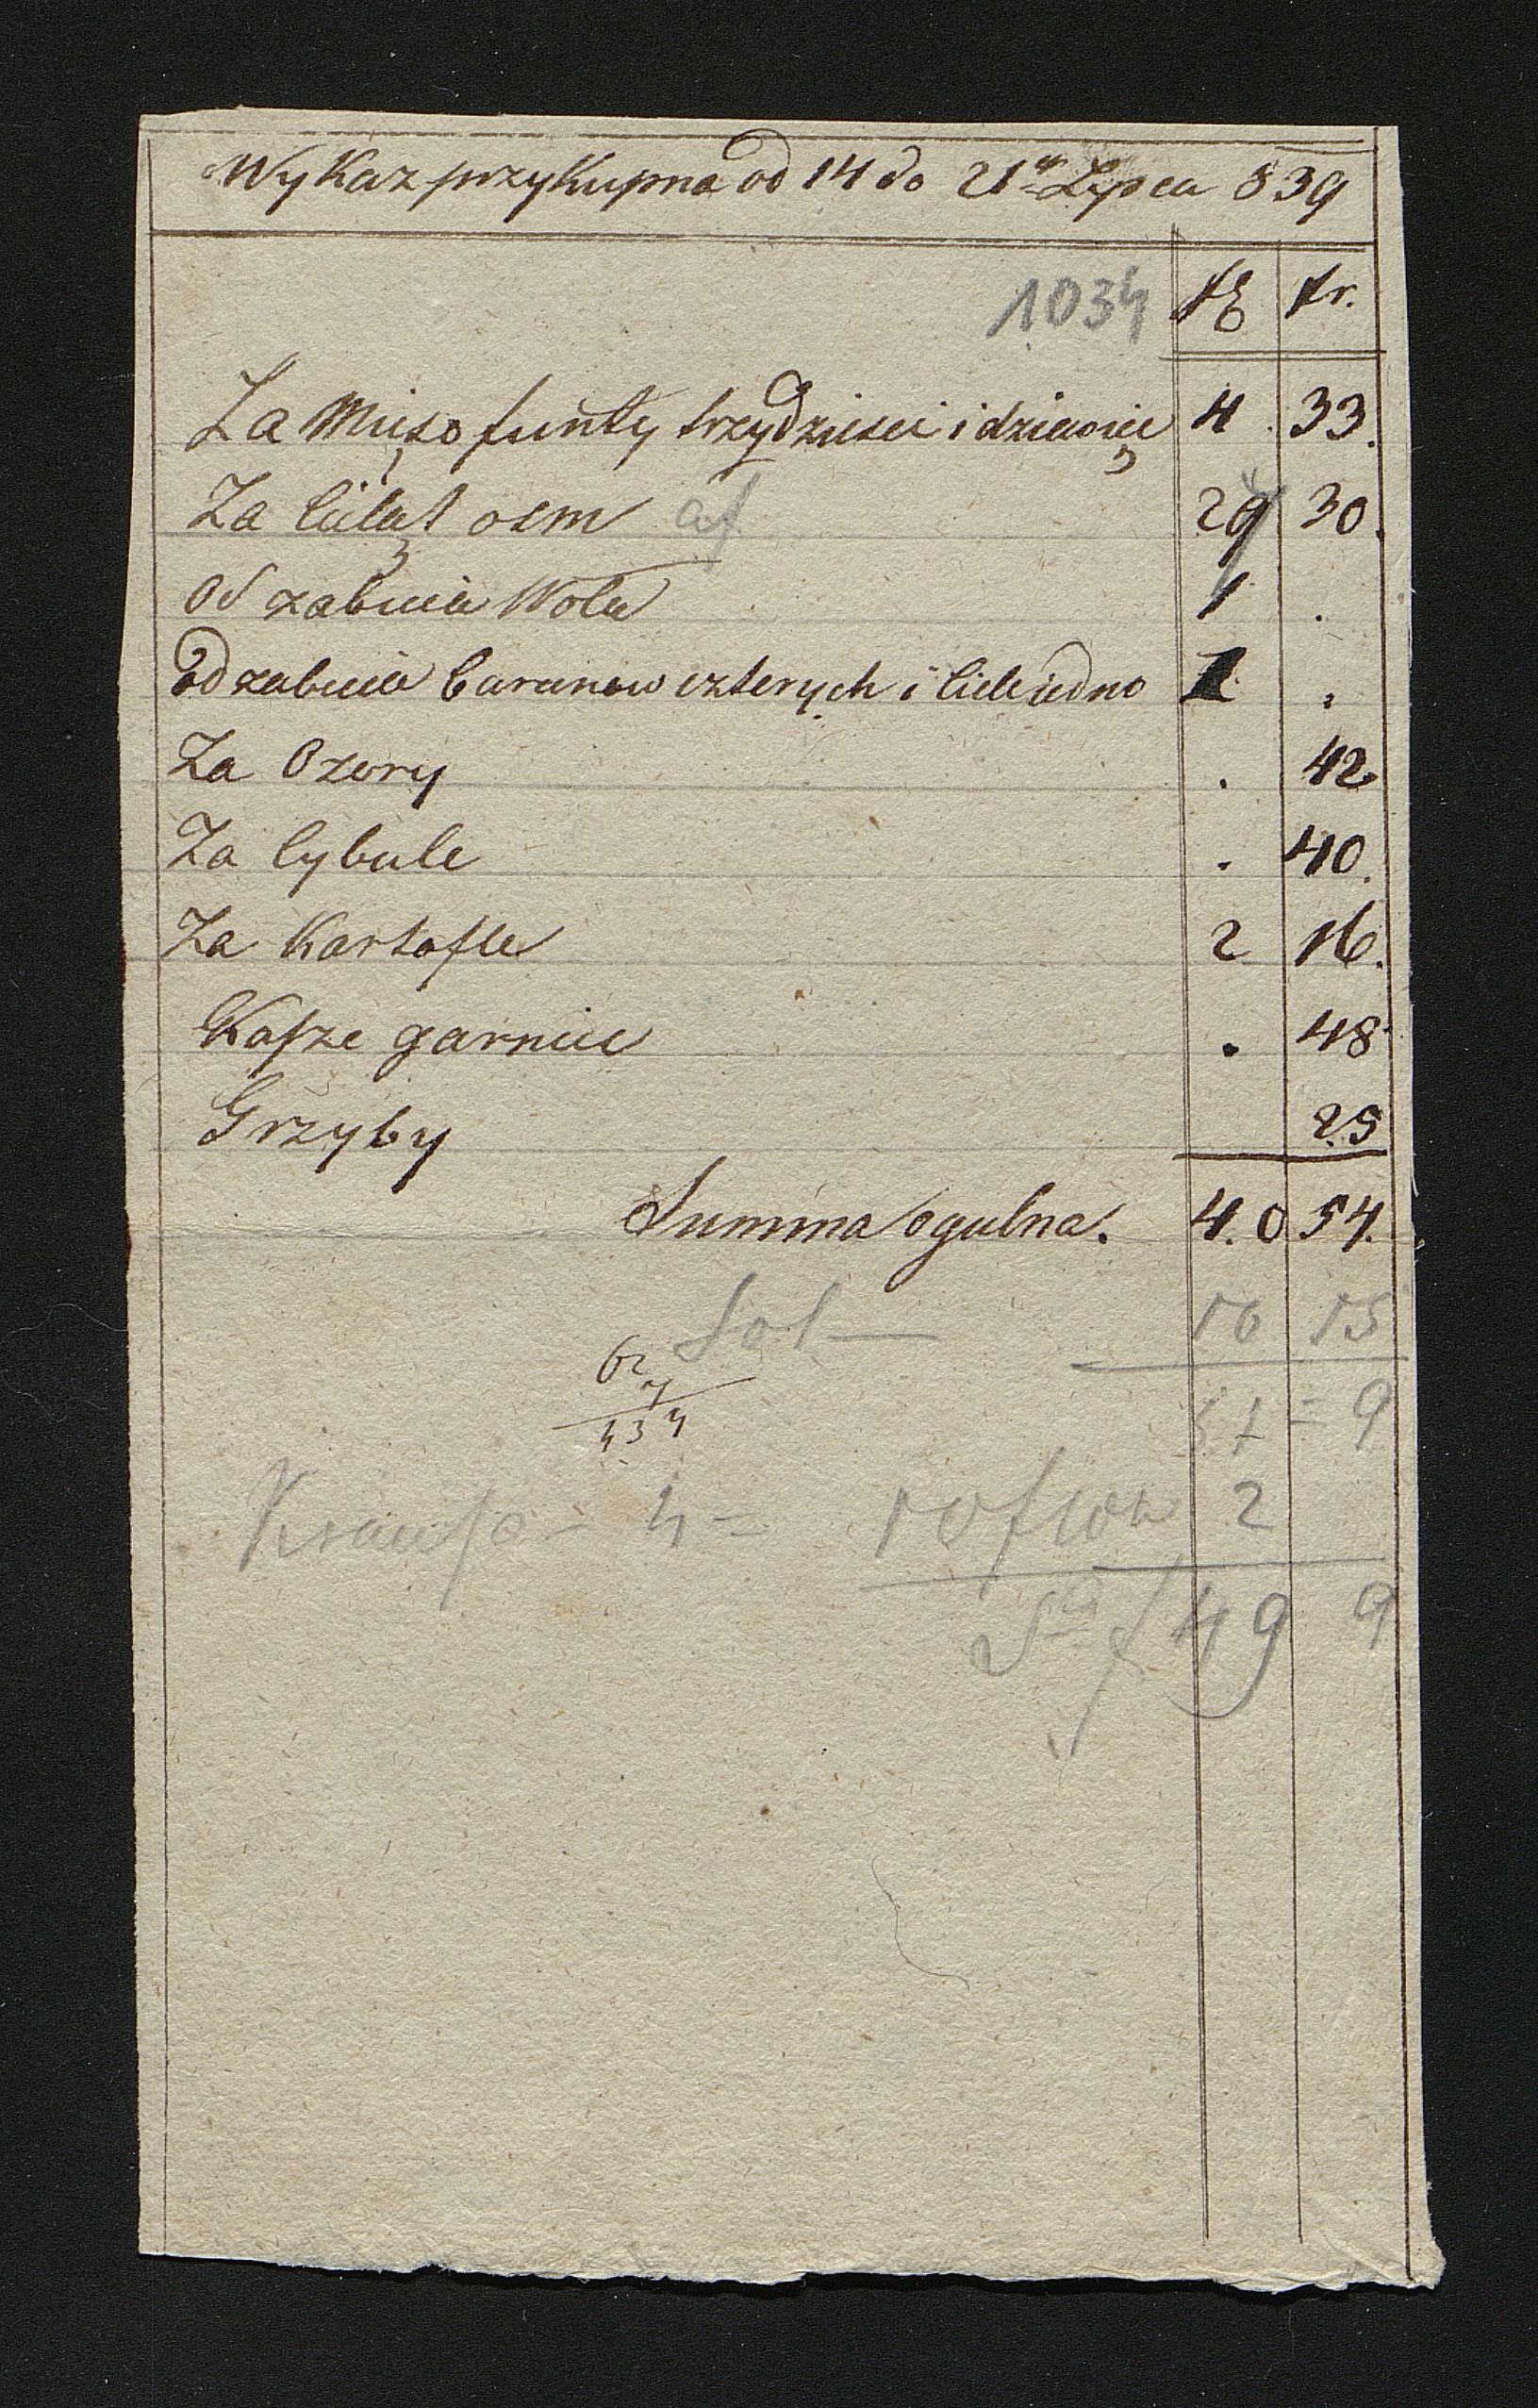 Wykaz przykupna od 14 do 21go Lipca 839
1034 kr.
Za Mięso funty trzydzieści i dziewięć 4 33.
Za Cieląt osm 29 30.
Od zabicia Wołu 1 .
Od zabicia baranow czterych i Ciele iedno 1 .
Za Ozory . 42
Za Cybule . 40.
Za Kartofle 2 16.
Kasze garniec . 48
Grzyby 25
Summa ogulna. 40 54.
16 15
57 = 9
2
49 9